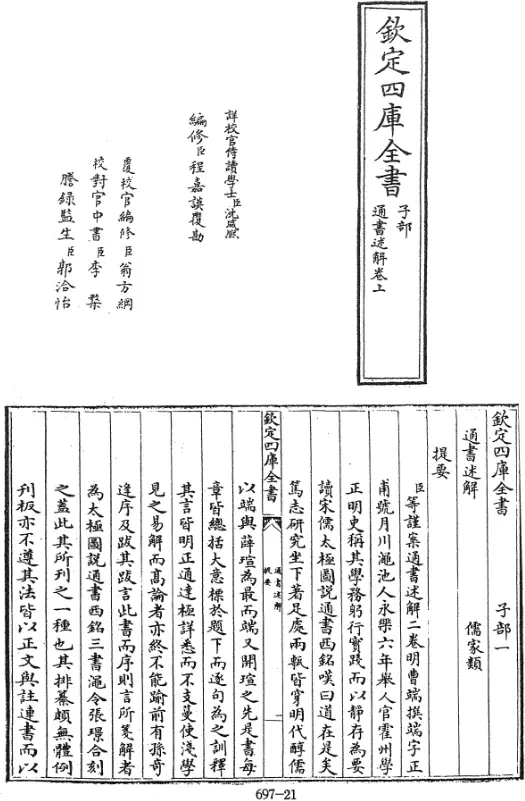 欽定四庫全書
子部
通書述解卷上
詳校官侍讀學士臣沈咸熙
編修臣程嘉謨覆勘
覆校官編修臣翁方綱
校對官中書臣李楘
謄錄監生臣郭洽怡
欽定四庫全書 子部一
通書述解 儒家類
提要
臣等謹案通書述解二卷明曹端撰端字正
甫號月川澠池人永樂六年舉人官霍州學
正明史稱其學務躬行實踐而以靜存為要
讀宋儒太極圖說通書西銘嘆曰道在是矣
篤志研究坐下著足處兩甎皆穿明代醇儒
欽定四庫全書
通書述解
提要
一
以端與薛瑄為最而端又開瑄之先是書每
章皆總括大意標於題下而逐句為之訓釋
其言皆明正通達極詳悉而不支蔓使淺學
見之易解而高論者亦終不能踰前有孫奇
逢序及跋其跋言此書而序則言所箋解者
為太極圖說通書西銘三書澠令張璟合刻
之蓋此其所刊之一種也其排纂頗無體例
刊板亦不遵其法皆以正文與註連書而以
697-21